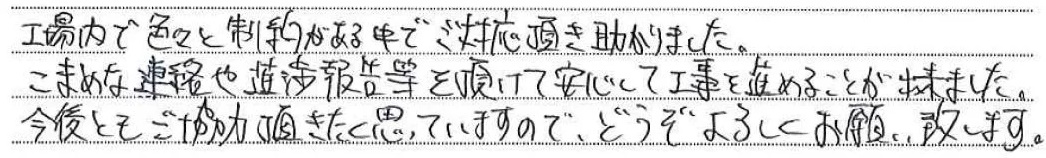 工場内で色々と制約がある中でご対応頂き助かりました。
こまめな連絡や進捗報告等を頂けて安心して工事を進めることが出来ました。
今後ともご協力頂きたく思っていますので、どうぞよろしくお願い致します。